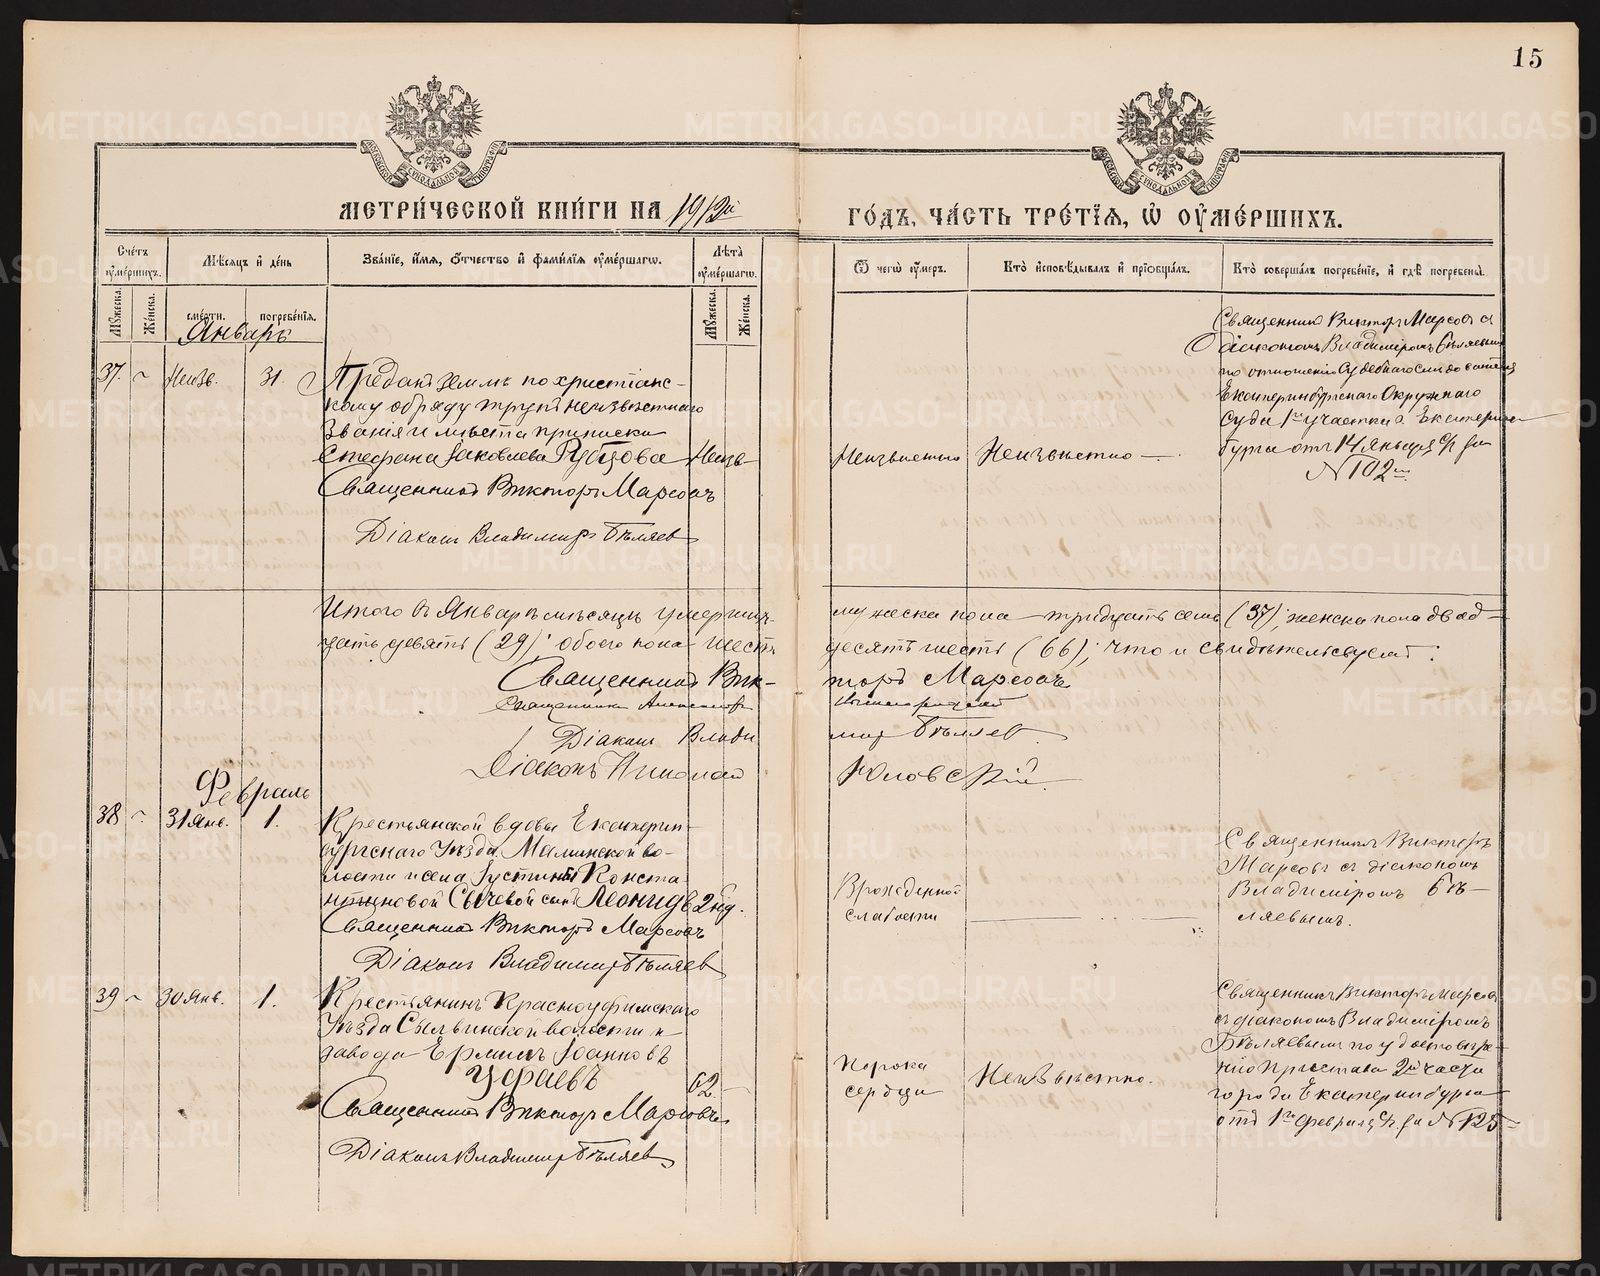 15
МЕТРИ́ЧЕСКОЙ КНИ́ГИ НА 1912й ГО́ДЪ, ЧА́СТЬ ТРЕ́ТЇѦ, Ѡ҆ ОУ҆МЕ́РШИХЪ.
Счетъ оумершихъ.
Мѣсяцъ и день
Званіе, имя, отчество и фамилія оумершагѡ.
Лѣта оумершагѡ.
Ѿ чегѡ оумеръ.
Кто исповѣдывалъ и пріобщалъ.
Кто совершалъ погребеніе, и гдѣ погребены.
Мужеска.
Женска.
смерти.
погребенія.
Мужеска.
Женска.
Январь
37.
Неизв.
31.
Преданъ землѣ по христіанс-
кому обряду трупъ неизвѣстнаго
званія и мѣста приписки
Стефана Іаковлева Рубцова
Неизв
Священникъ Викторъ Марсовъ
Діаконъ Владимиръ Бѣляевъ
Неизвѣстно
Неизвѣстно
Священникъ Викторъ Марсовъ съ
діакономъ Владиміромъ Бѣляевым
по отношенію Судебнаго Слѣдователя
Екатеринбургскаго Окружнаго
Суда 1го участка г. Екатерин
бурга отъ 14 Января с/г за
№ 102м
Итого въ Январѣ мѣсяцѣ умершихъ мужеска пола – тридцать семь (37); женска пола двад-
цать девять (29); обоего пола шесть десятъ шесть (66); что и свидѣтельствуютъ:
Священникъ Викторъ Марсовъ
Священникъ Александръ
Діаконъ Владимиръ Бѣляев
Діаконъ Николай Юловскій
Февраль
38
31 Янв.
1.
Крестьянской вдовы Екатерин-
бургскаго уѣзда Маминской во-
лости и села Іустины Конста
нтиновой Сычевой сынъ Леонидъ
2 нд.
Священникъ Викторъ Марсовъ
Діаконъ Владимиръ Бѣляев
Врожденной
слабости
Священникъ Викторъ
Марсовъ съ діакономъ
Владиміромъ Бѣ-
ляевымъ.
39
30 Янв.
1.
Крестьянинъ Красноуфимскаго
уѣзда Сылвинской волости и
завода Ермилъ Іоанновъ
Уфаевъ
62
Священникъ Викторъ Марсовъ
Діаконъ Владимиръ Бѣляев
Порока
сердца
Неизвѣстно.
Священникъ Викторъ Марсовъ
съ діакономъ Владиміромъ
Бѣляевымъ по удостовѣре-
нію Пристава 2й части
города Екатеринбурга
отъ 1го февраля с/г. за № 125
METRIKI.GASO-URAL.RU